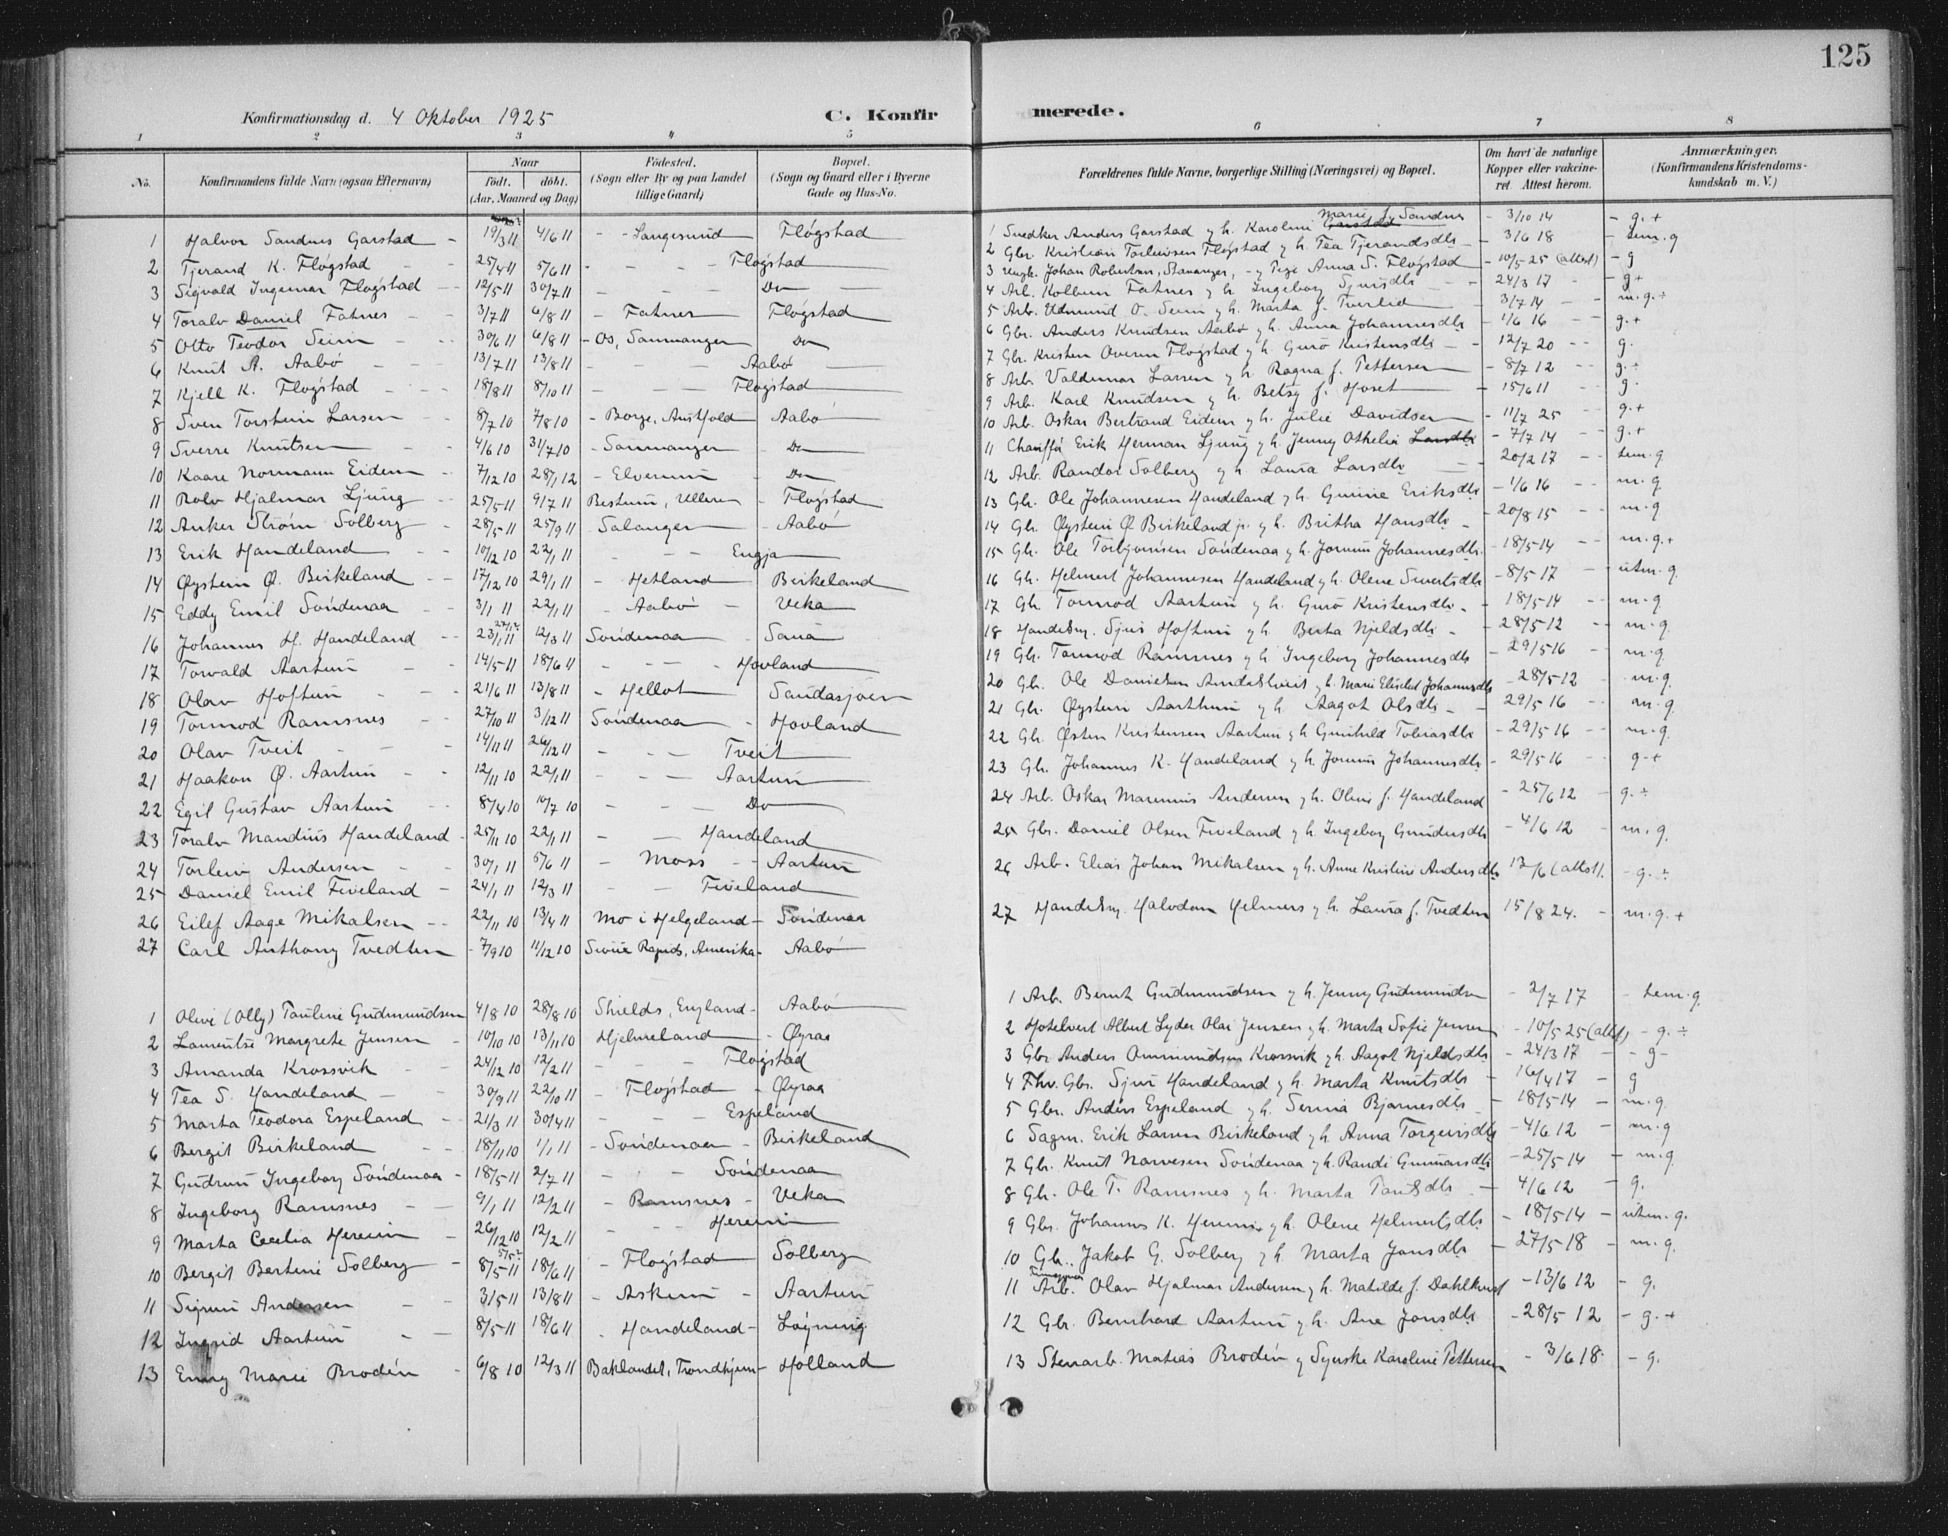 125
Konfirmationsdag d. 4 Oktober 1925 C. Konfirmerede.
1 2 3 4 5 6 7 8
No. Konfirmandens fulde Navn (ogsaa Efternavn) Naar født. døbt. (Aar, Maaned og Dag) Fødested. (Sogn eller By og paa Landet tillige Gaard) Bopæl. (Sogn og Gaard eller i Byerne Gade og Hus-No. Forældrenes fulde Navne, borgerlige Stilling (Næringsvei) og Bopæl. Om havt de naturlige Kopper eller vakcineret. Attest herom. Anmærkninger. (Konfirmandens Kristendomskundskab m. V.)
1 Halvor Sandnes Garstad 19/3 11 4/6 11 Langesund Fløgstad
2 Tjerand K. Fløgstad 25/4 11 5/6 11 Fløgstad
3 Sigvald Ingemar Fløgstad 12/5 11 30/7 11 Do
4 Toralv Daniel Fatnes 3/7 11 6/8 11 Fatnes Fløgstad
5 Otto Teodor Seim 30/6 11 6/8 11 Os, Samnanger Do
6 Knut A. Aabø 13/7 11 13/8 11 Aabø
7 Kjell K. Fløgstad 18/8 11 8/10 11 Fløgstad
8 Sven Torstein Larsen 8/7 10 7/8 10 Borge, Austfold Aabø
9 Sverre Knutsen 4/6 10 31/7 10 Samnanger Do
10 Kaare Normann Eidem 7/12 10 28/1 12 Elverum Do
11 Rolv Hjalmar Ljung 25/5 11 9/7 11 Bestum, Ullern Fløgstad
12 Anker Strøm Solberg 28/5 11 25/9 11 Salangen Aabø
13 Erik Handeland 10/12 10 22/1 11 Engja
14 Øystein Ø. Birkeland 17/12 10 29/1 11 Hetland Birkeland
15 Eddy Emil Søndenaa 3/1 11 22/1 11 Aabø Veka
16 Johannes H. Handeland 23/1 11 12/3 11 Søndenaa Sauä
17 Torvald Aartun 14/5 11 18/6 11 Hovland
18 Olav Hoftun 21/6 11 13/8 11 Helløt Sandasjøen
19 Tormod Ramsnes 27/10 11 3/12 11 Søndenaa Hovland
20 Olav Tveit 14/11 11 26/12 11 Tveit
21 Haakon Ø. Aartun 12/11 10 22/1 11 Aartun
22 Egil Gustav Aartun 8/4 10 10/7 10 Do
23 Toralv Mandius Handeland 25/11 10 22/1 11 Handeland
24 Torleiv Andersen 30/1 11 5/6 11 Moss Aartun
25 Daniel Emil Fiveland 24/1 11 12/3 11 Fiveland
26 Eilef Aage Mikalsen 22/11 10 13/4 11 Mo i Helgeland Søndenaa
27 Carl Anthony Tvedten 7/9 10 11/12 10 Sioux Rapids, Amerika Aabø
1 Olevi (Olly) Pauline Gudmundsen 4/8 10 28/8 10 Shields, England Aabø
2 Lauentse Margrete Jensen 10/10 10 13/11 10 Hjelmeland Øyraa
3 Amanda Krossvik 24/12 10 12/2 11 Fløgstad
4 Tea S. Handeland 30/9 11 22/10 11 Fløgstad Øyraa
5 Marta Teodora Espeland 21/3 11 30/4 11 Espeland
6 Bergit Birkeland 18/11 10 1/1 11 Søndenaa Birkeland
7 Gudrun Ingeborg Søndenaa 18/5 11 2/7 11 Søndenaa
8 Ingeborg Ramsnes 9/1 11 12/2 11 Ramsnes Veka
9 Marta Cecelia Hereim 26/12 10 12/2 11 Hereim
10 Bergit Bertine Solberg 8/5 11 18/6 11 Fløgstad Solberg
11 Sigrun Andersen 3/5 11 13/8 11 Askim Aartun
12 Ingrid Aartun 8/5 11 18/6 11 Handeland Løyning
13 Enny Marie Brodén 6/8 10 12/3 11 Baklandet, Trondhjem Holland
1 Snedker Anders Garstad og h. Karoline Marie f. Sandnes 3/10 14 g.+
2 Gbr. Kristian Torleivsen Fløgstad og h. Tea Tjerandsdtr 3/6 18 tem. g
3 Ungk. Johan Robertsen, Stavanger, og Pige Anna S. Fløgstad 10/5 25 (attest) g
4 Arb. Kolbein Fatnes og h. Ingeborg Sjursdtr 24/3 17 g+
5 Arb. Edmund O. Seim og h. Marta f. Tverlid 3/7 14 m.g.÷
6 Gbr. Anders Knudsen Aabø og h. Anna Johannesdtr 1/6 16 g.+
7 Gbr. Kristen Overein Fløgstad og h. Gurø Kristensdtr 12/7 20 g.
8 Arb. Valdemar Larsen og h. Ragna f. Pettersen 8/7 12 g.÷
9 Arb. Karl Knudsen og h. Betsy f. Hoset 15/6 11 g.
10 Arb. Oskar Bertrand Eidem og h. Julie Davidsen 11/7 25 g.+
11 Chauffør Erik Herman Ljung og h. Jenny Othelia 7/7 14 g.+
12 Arb. Randor Solberg og h. Laura Larsdtr 20/2 17 tem. g
13 Gbr. Ole Johannesen Handeland og h. Gunne Eriksdtr 1/6 16 m.g
14 Gbr. Øystein Ø Birkeland jr. og h. Britha Hansdtr 20/8 15 m.g
15 Gbr. Ole Torbjørnsen Søndenaa og h. Jorunn Johannesdtr. 18/5 14 m.g.+
16 Gbr. Helmert Johannesen Handeland og h. Olene Sivertsdtr 8/5 17 utm. g.
17 Gbr. Tormod Aartun og h. Gurø Kristensdtr 18/5 14 m.g
18 Handelsm. Sjur Hoftun og h. Berta Kjeldsdtr 28/5 12 m.g.
19 Gbr. Tormod Ramsnes og h. Ingeborg Johannesdtr 29/5 16 m.g.
20 Gbr. Ole Danielsen og h. Marie Elisabet Johannesdtr 28/5 12 m.g.
21 Gbr. Øystein Aarthun og h. Aagot Olsdtr 29/5 16 m.g.
22 Gbr. Østen Kristensen Aartun og h. Gunhild Tobiasdtr 29/5 16 m.g.
23 Gbr. Johannes K. Handeland og h. Jorunn Johannesdtr 29/5 16 g.+
24 Arb. Oskar Marenius Andersen og h. Oline f. Handeland 25/6 12 g.÷
25 Gbr. Daniel Olsen Fiveland og h. Ingeborg Gundersdtr 4/6 12 m.g.
26 Arb. Elias Johan Mikalsen og h. Anne Kristine Andersdtr 12/6 (attest). g.÷
27 Handelsm. Halvdan Helmers og h. Laura f. Tvedten 15/8 24. m.g.+
1 Arb. Bernt Gudmundsen og h. Jenny Gudmundsen 2/7 17 tem. g
2 Hotelvert Albert Lyder Olai Jensen og h. Marta Sofie Jensen 10/5 25 (attest) g.÷
3 Gbr. Anders Ommundsen Krossvik og h. Aagot Kjeldsdtr 24/3 17 g-
4 Fhv. Gbr. Sjur Handeland og h. Marta Knutsdtr 16/4 17 g
5 Gbr. Anders Espeland og h. Serina Bjarnesdtr 18/5 14 m.g.
6 Sagm. Erik Larsen Birkeland og h. Anna Torgeirsdtr 4/6 12 m.g
7 Gbr. Knut Narvesen Søndenaa og h. Randi Gunnarsdtr 25/5 14 m.g.
8 Gbr. Ole T. Ramsnes og h. Marta Paulsdtr 4/6 12 g.
9 Gbr. Johannes K. Hereim og h. Olene Helmertsdtr 18/5 14 utm. g.
10 Gbr. Jakob G. Solberg og h. Marta Jonsdtr 27/5 18 m.g.
11 Arb. Olav Hjalmar Andersen og h. Matilde f. Dahlkvist 13/6 12 g.
12 Gbr. Bernhard Aartun og h. Ane Jonsdtr 28/5 12 g.+
13 Stenarb. Matias Brodén og Synske Karoline Pettersen 3/6 18. g.